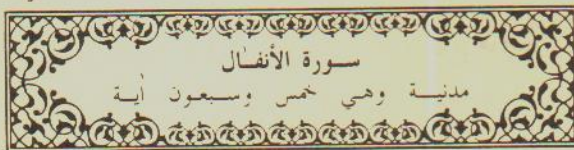 سورة الأنفال
مدنية وهي خمس وسبعون أية